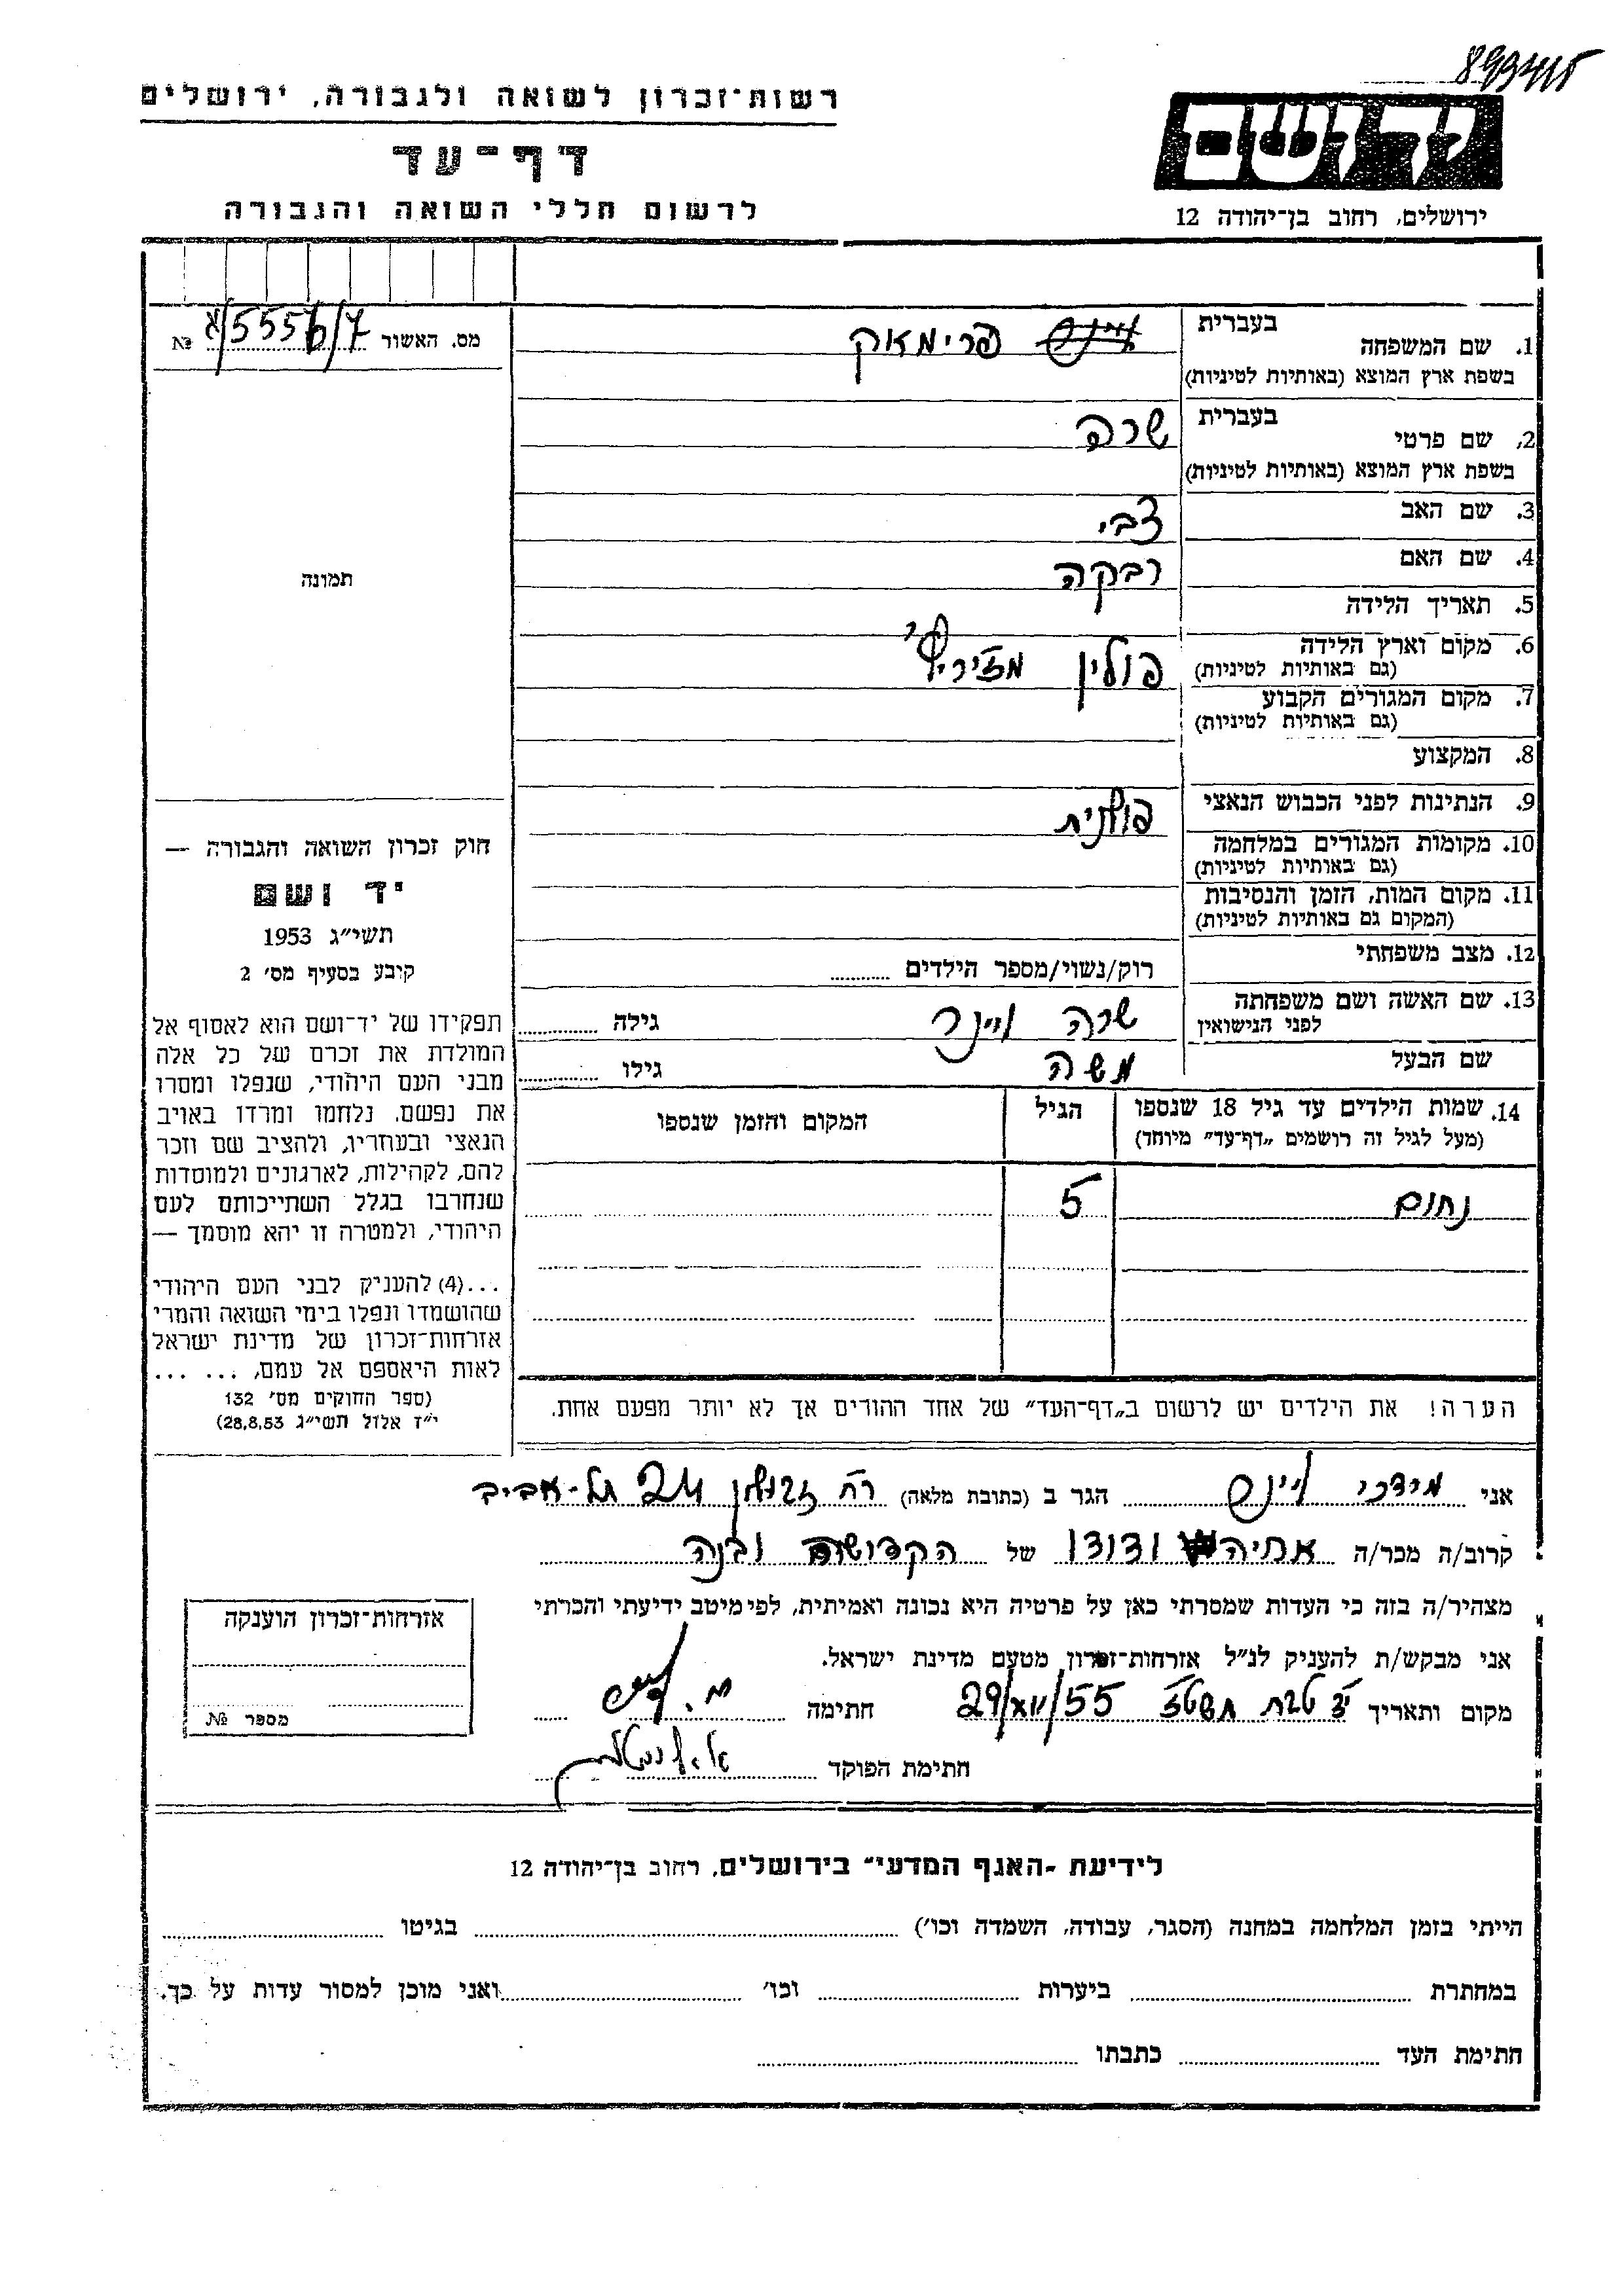 רשות־זכרון לשואה ולגבורה, ירושלים
דף־עד
לרשום חללי השואה והגבורה
ידושם
ירושלים, רחוב בן־יהודה 12
מס. האשור
№
1. שם המשפחה
בעברית
פרימאק
בשפת ארץ המוצא (באותיות לטיניות)
2. שם פרטי
בעברית
שרה
בשפת ארץ המוצא (באותיות לטיניות)
3. שם האב
צבי
4. שם האם
רבקה
5. תאריך הלידה
6. מקום וארץ הלידה
(גם באותיות לטיניות)
פולין
7. מקום המגורים הקבוע
(גם באותיות לטיניות)
8. המקצוע
9. הנתינות לפני הכבוש הנאצי
פולנית
10. מקומות המגורים במלחמה
(גם באותיות לטיניות)
11. מקום המות, הזמן והנסיבות
(המקום גם באותיות לטיניות)
12. מצב משפחתי
רוק/נשוי/מספר הילדים
13. שם האשה ושם משפחתה
לפני הנישואין
שרה גילה
שם הבעל
משה גילו
14. שמות הילדים עד גיל 18 שנספו
(מעל לגיל זה רושמים „דף־עד” מיוחד)
הגיל
המקום והזמן שנספו
נחום 5
הערה! את הילדים יש לרשום ב„דף־העד” של אחד ההורים אך לא יותר מפעם אחת.
תמונה
חוק זכרון השואה והגבורה —
יד ושם
תשי״ג 1953
קובע בסעיף מס׳ 2
תפקידו של יד־ושם הוא לאסוף אל
המולדת את זכרם של כל אלה
מבני העם היהודי, שנפלו ומסרו
את נפשם, נלחמו ומרדו באויב
הנאצי ובעוזריו, ולהציב שם וזכר
להם, לקהילות, לארגונים ולמוסדות
שנחרבו בגלל השתייכותם לעם
היהודי, ולמטרה זו יהא מוסמך —
...(4) להעניק לבני העם היהודי
שהושמדו ונפלו בימי השואה והמרי
אזרחות־זכרון של מדינת ישראל
לאות היאספם אל עמם, ... ...
(ספר החוקים מס׳ 132
י״ז אלול תשי״ג 28.8.53)
אני מרדכי הגר ב (כתובת מלאה) רח זבולון 24 תל-אביב
קרוב/ה מכר/ה אחיה ודודו של הקדושה ובנה
מצהיר/ה בזה כי העדות שמסרתי כאן על פרטיה היא נכונה ואמיתית, לפי מיטב ידיעתי והכרתי
אני מבקש/ת להעניק לנ״ל אזרחות־זכרון מטעם מדינת ישראל.
מקום ותאריך יד טבת תשטז 29/XII/55 חתימה
חתימת הפוקד
אזרחות־זכרון הוענקה
מספר №
לידיעת ״האגף המדעי״ בירושלים, רחוב בן־יהודה 12
הייתי בזמן המלחמה במחנה (הסגר, עבודה, השמדה וכו׳) בגיטו
במחתרת ביערות וכו׳ ואני מוכן למסור עדות על כך.
חתימת העד כתבתו